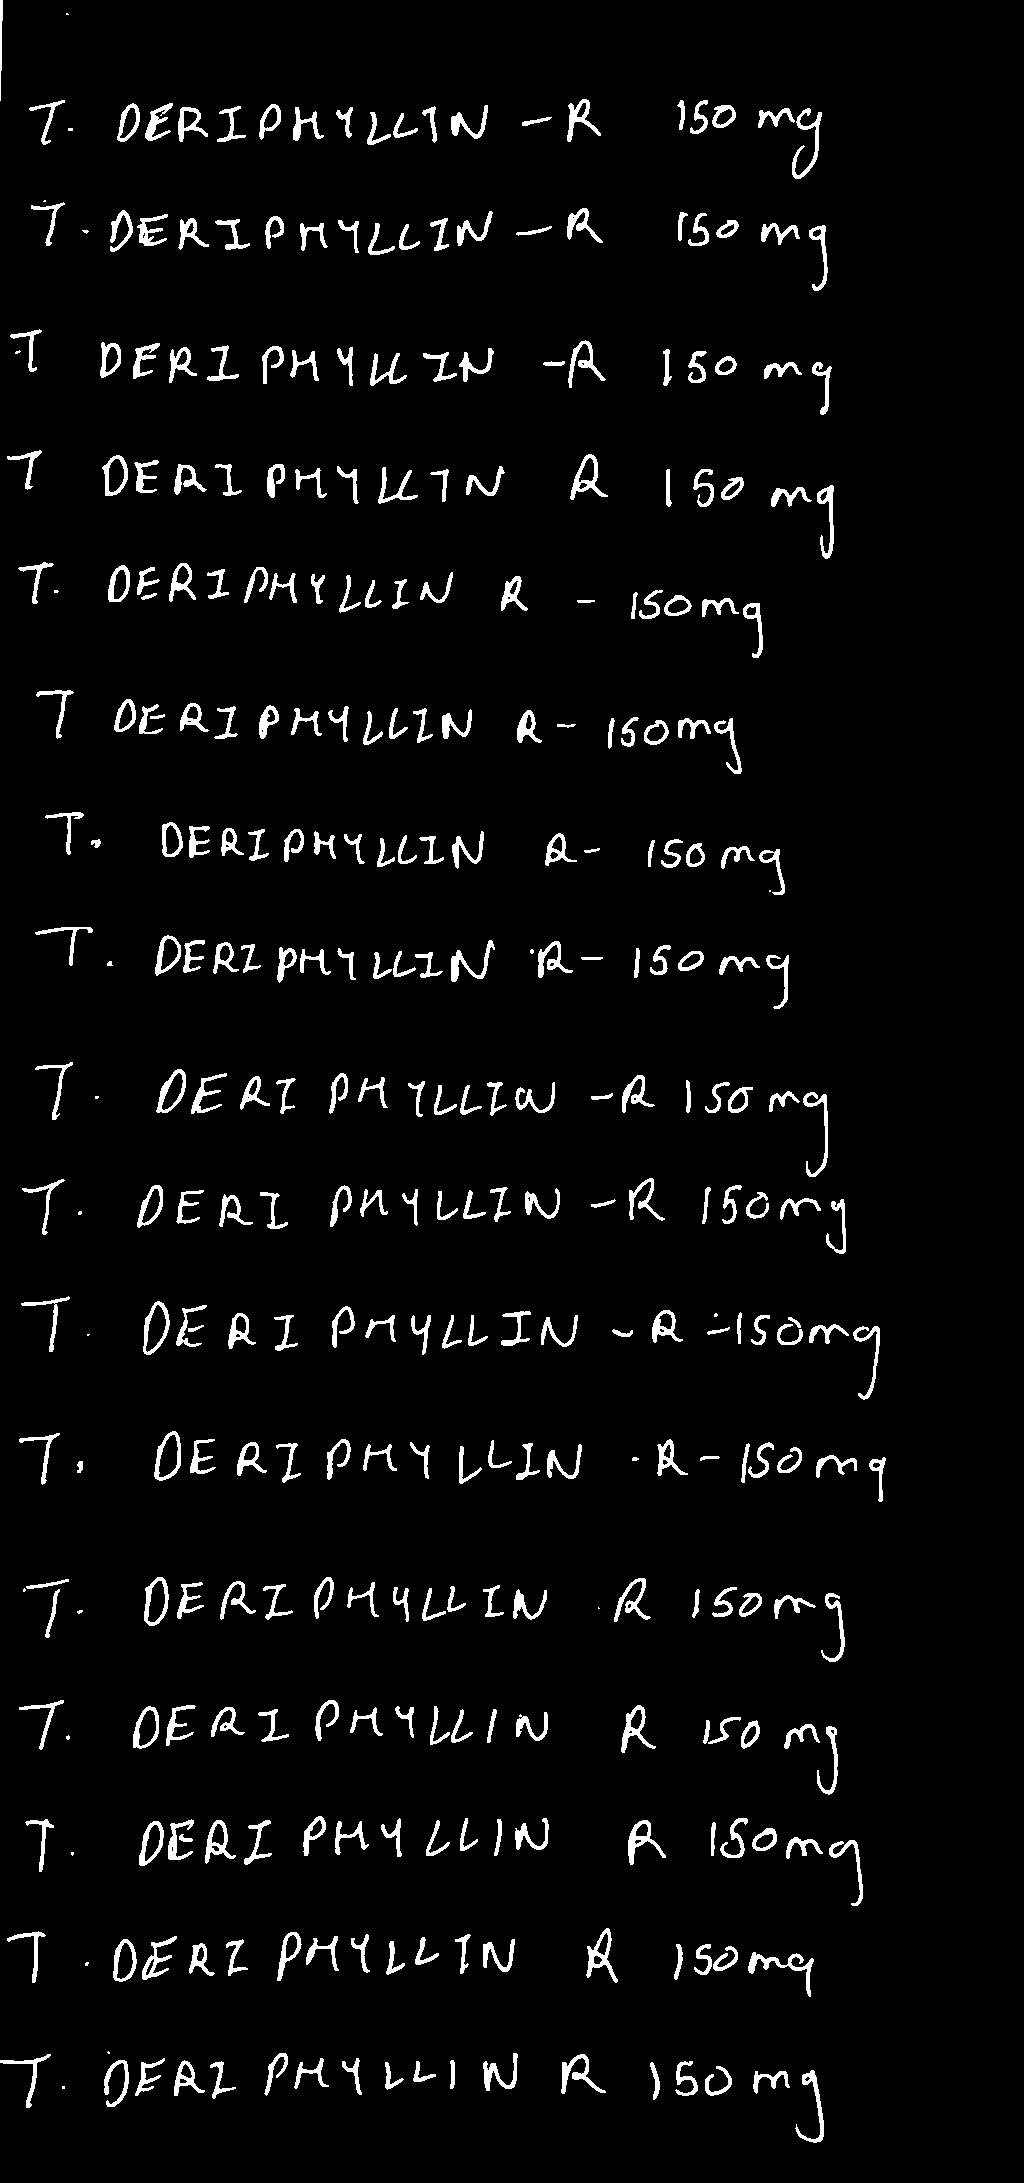 T. DERIPHYLLIN -R 150 mg
T. DERIPHYLLIN -R 150 mg
T DERIPHYLLIN -R 150 mg
T DERIPHYLLIN R 150 mg
T. DERIPHYLLIN R - 150mg
T DERIPHYLLIN R- 150mg
T. DERIPHYLLIN R- 150 mg
T. DERIPHYLLIN R- 150 mg
T. DERI PHYLLIN -R 150 mg
T. DERI PHYLLIN -R 150mg
T. DERI PHYLLIN - R -150mg
T. DERI PHYLLIN . R- 150 mg
T. DERIPHYLLIN R 150mg
T. DERIPHYLLIN R 150 mg
T. DERI PHYLLIN R 150mg
T. DERI PHYLLIN R 150mg
T. DERI PHYLLIN R 150 mg